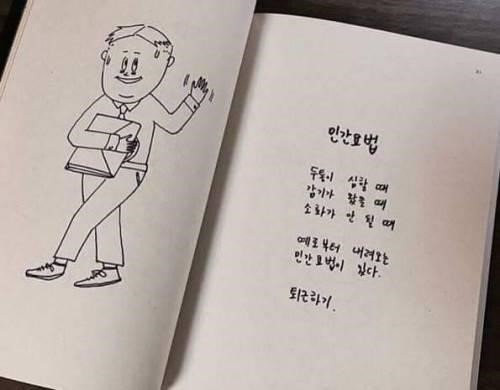 민간요법
두통이 심할 때
감기가 왔을 때
소화가 안 될 때
예로부터 내려오는
민간요법이 있다.
퇴근하기.